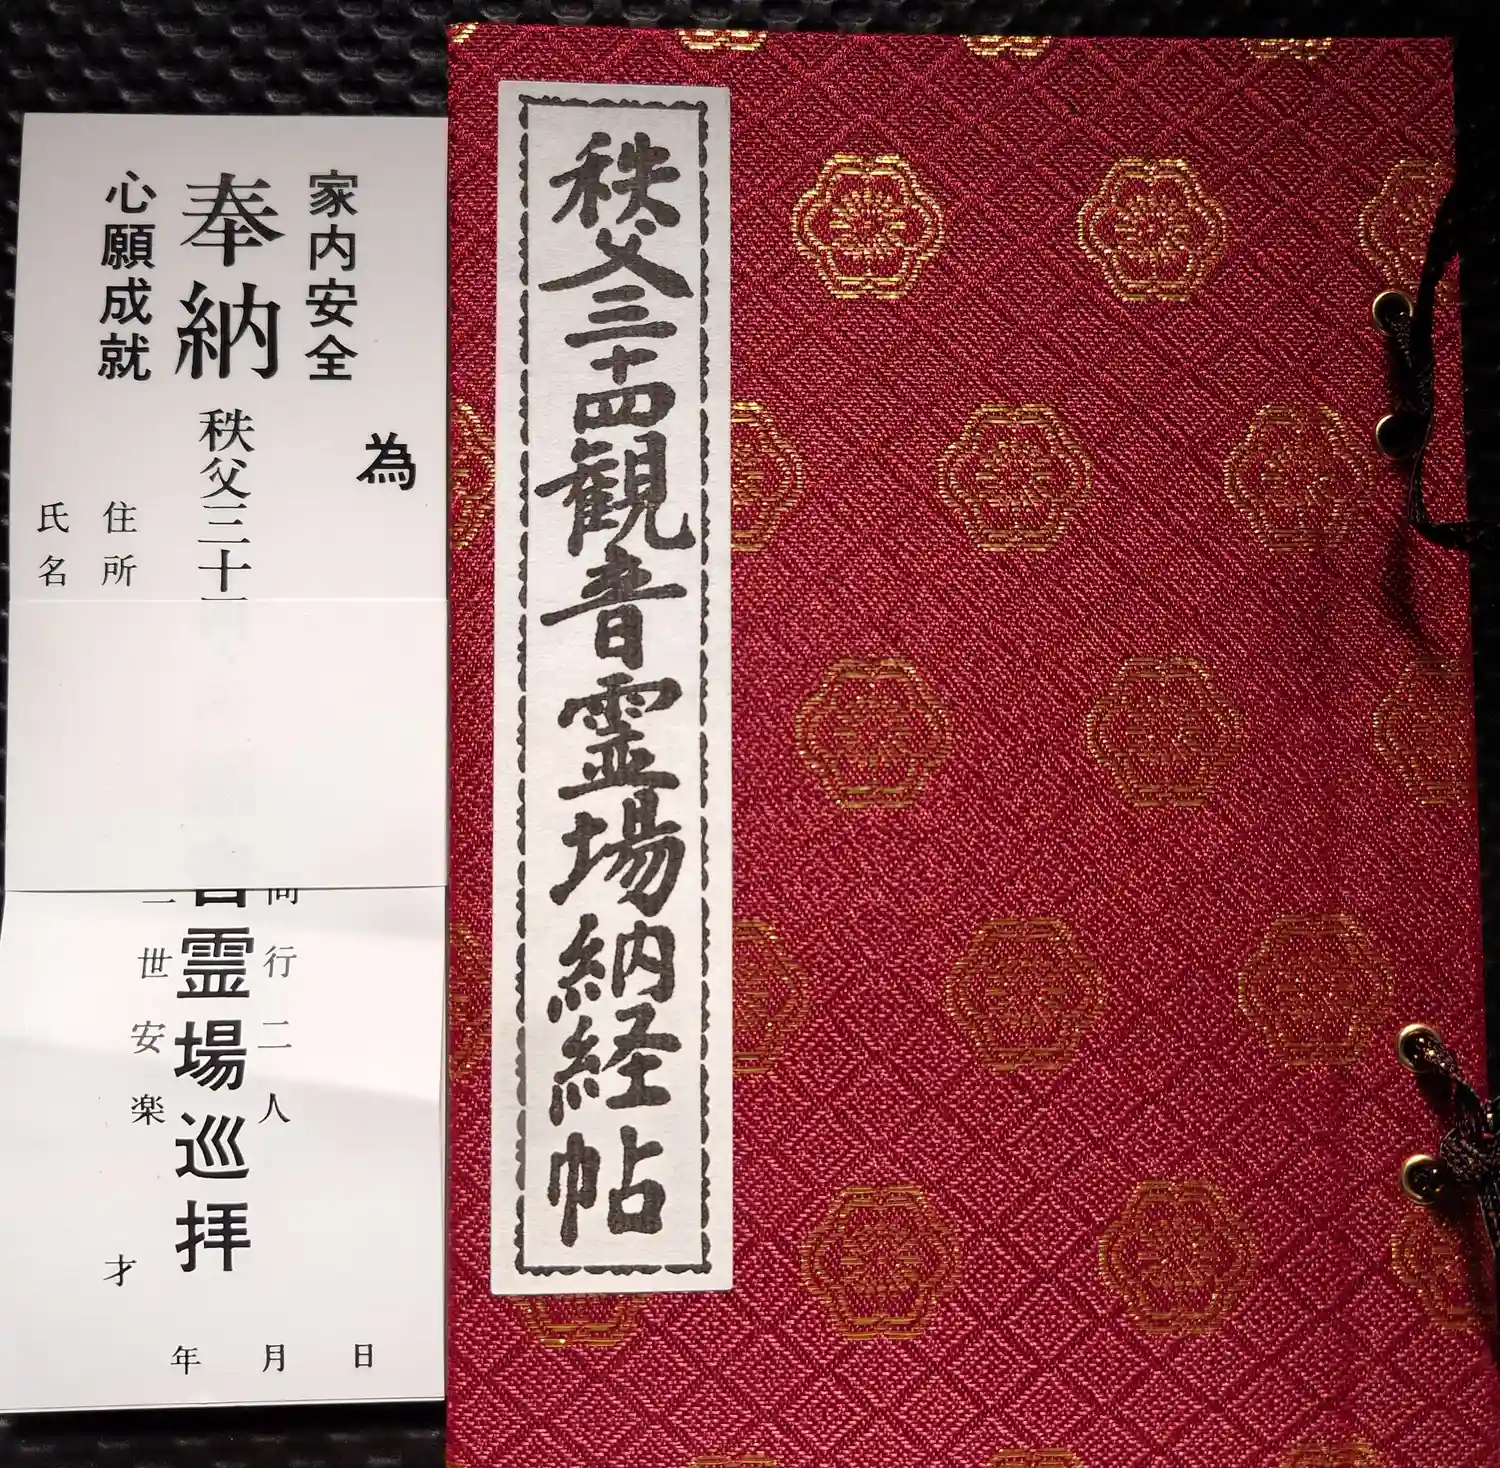 秩父三十四観音霊場納経帖
為
家内安全
奉納 秩父三十
音霊場巡拝
心願成就
同行二人
二世安楽
住所
氏名
才
年 月 日